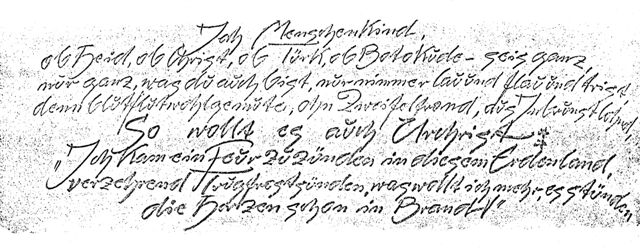 Menschenkind,
ob Heid, ob Christ, ob Türk, ob Botokude – seis ganz,
nur ganz, was du auch bist, nur nimmer lau und flau und trist
denn blutflutwohlgemute, ohn Zweifelbrand, aus Inbrunst
So wollt es auch Urchrist
„Ich kam ein Feur zu zünden in diesem Erdenland,
verzehrend Trugfrostsünden, was wollt ich mehr, es stünden
die Herzen schon in Brand!"